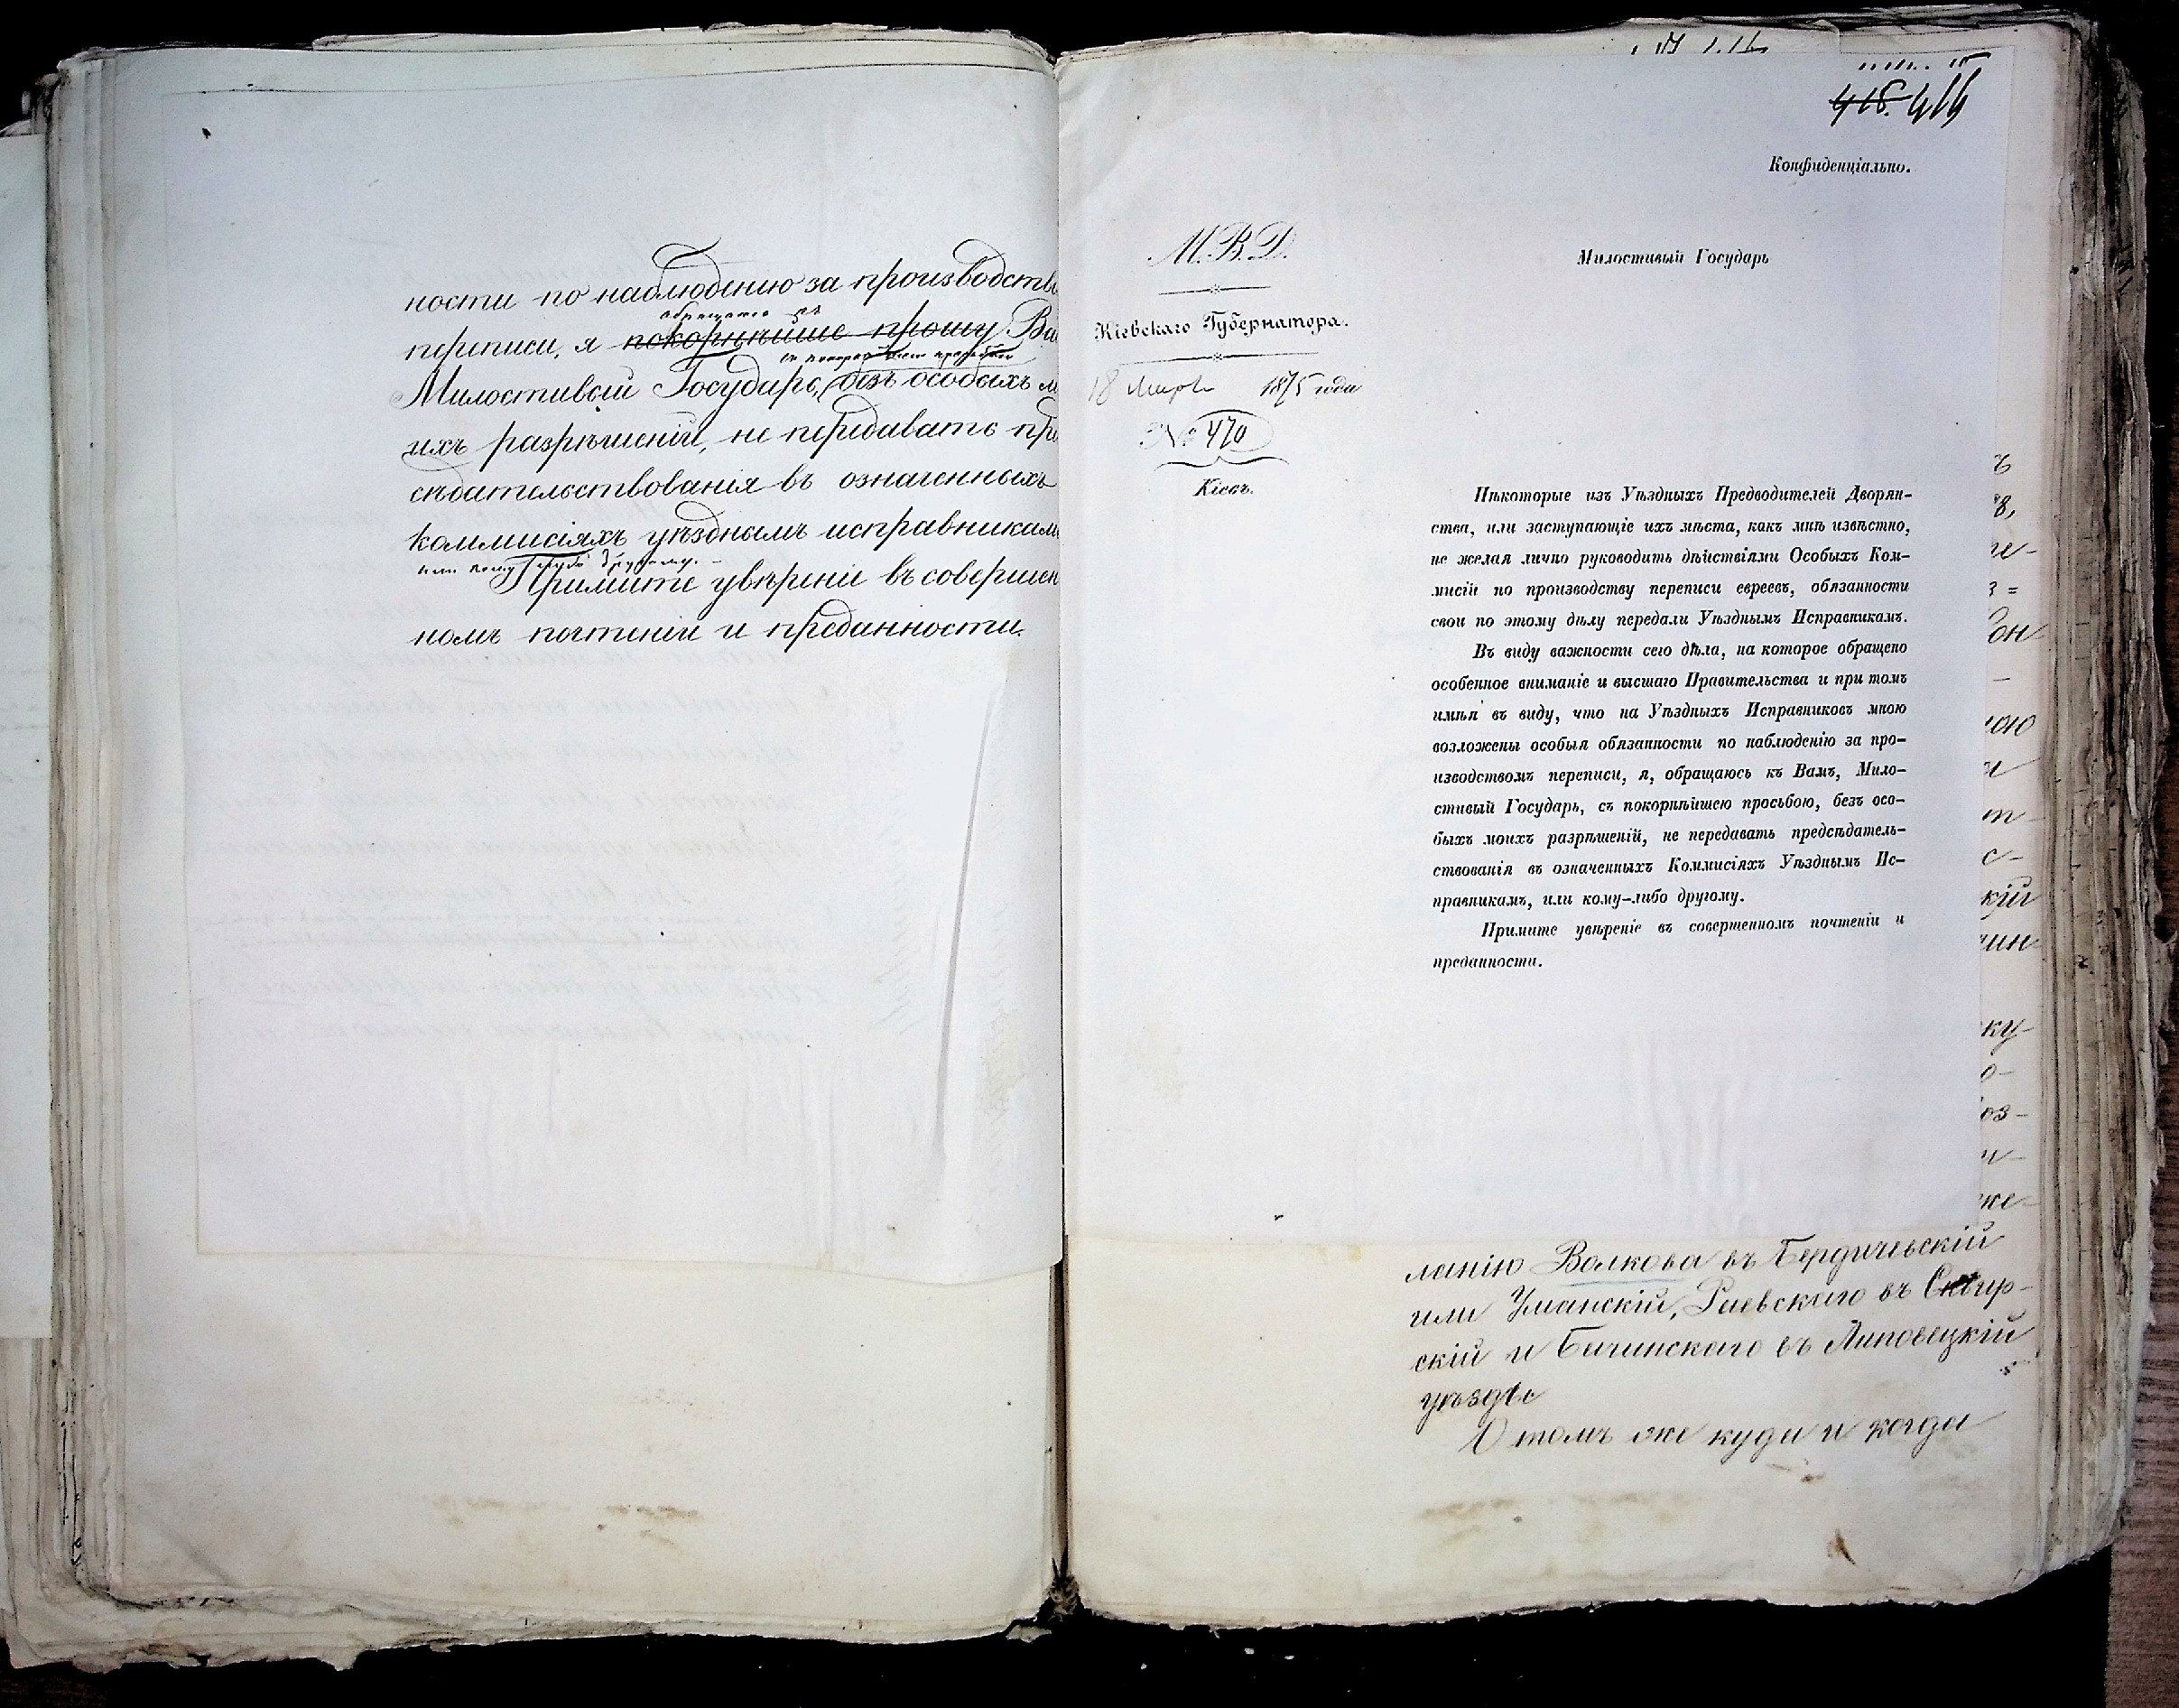 ности по наблюденію за производств
обращаюсь къ
переписи, я покорнѣйше прошу Ва
съ покорнѣйшею просьбою
Милостивый Государь, безъ особыхъ м
ихъ разрѣшеній, не передавать пр
сѣдательствованія въ означенныхъ
коммисіяхъ уѣзднымъ исправникам
или кому либо другому.
Примите увѣреніе въ совершен
номъ почтеніи и преданности.
418. 414
Конфиденціально.
М.В.Д.
Кіевскаго Губернатора.
18 Марта 1875 года
№ 470
Кіевъ.
Милостивый Государь
Нѣкоторые изъ Уѣздныхъ Предводителей Дворян-
ства, или заступающіе ихъ мѣста, какъ мнѣ извѣстно,
не желая лично руководить дѣйствіями Особыхъ Ком-
мисій по производству переписи евреевъ, обязанности
свои по этому дѣлу передали Уѣзднымъ Исправникамъ.
Въ виду важности сего дѣла, на которое обращено
особенное вниманіе и высшаго Правительства и при томъ
имѣя въ виду, что на Уѣздныхъ Исправниковъ мною
возложены особыя обязанности по наблюденію за про-
изводствомъ переписи, я, обращаюсь къ Вамъ, Мило-
стивый Государь, съ покорнѣйшею просьбою, безъ осо-
быхъ моихъ разрѣшеній, не передавать предсѣдатель-
ствованія въ означенныхъ Коммисіяхъ Уѣзднымъ Ис-
правникамъ, или кому-либо другому.
Примите увѣреніе въ совершенномъ почтеніи и
преданности.
ланію Волкова въ Бердичевскій
или Уманскій, Раевскаго въ Сквир-
скій и Бачинскаго въ Липовецкій
уѣзды
О томъ же куда и когда